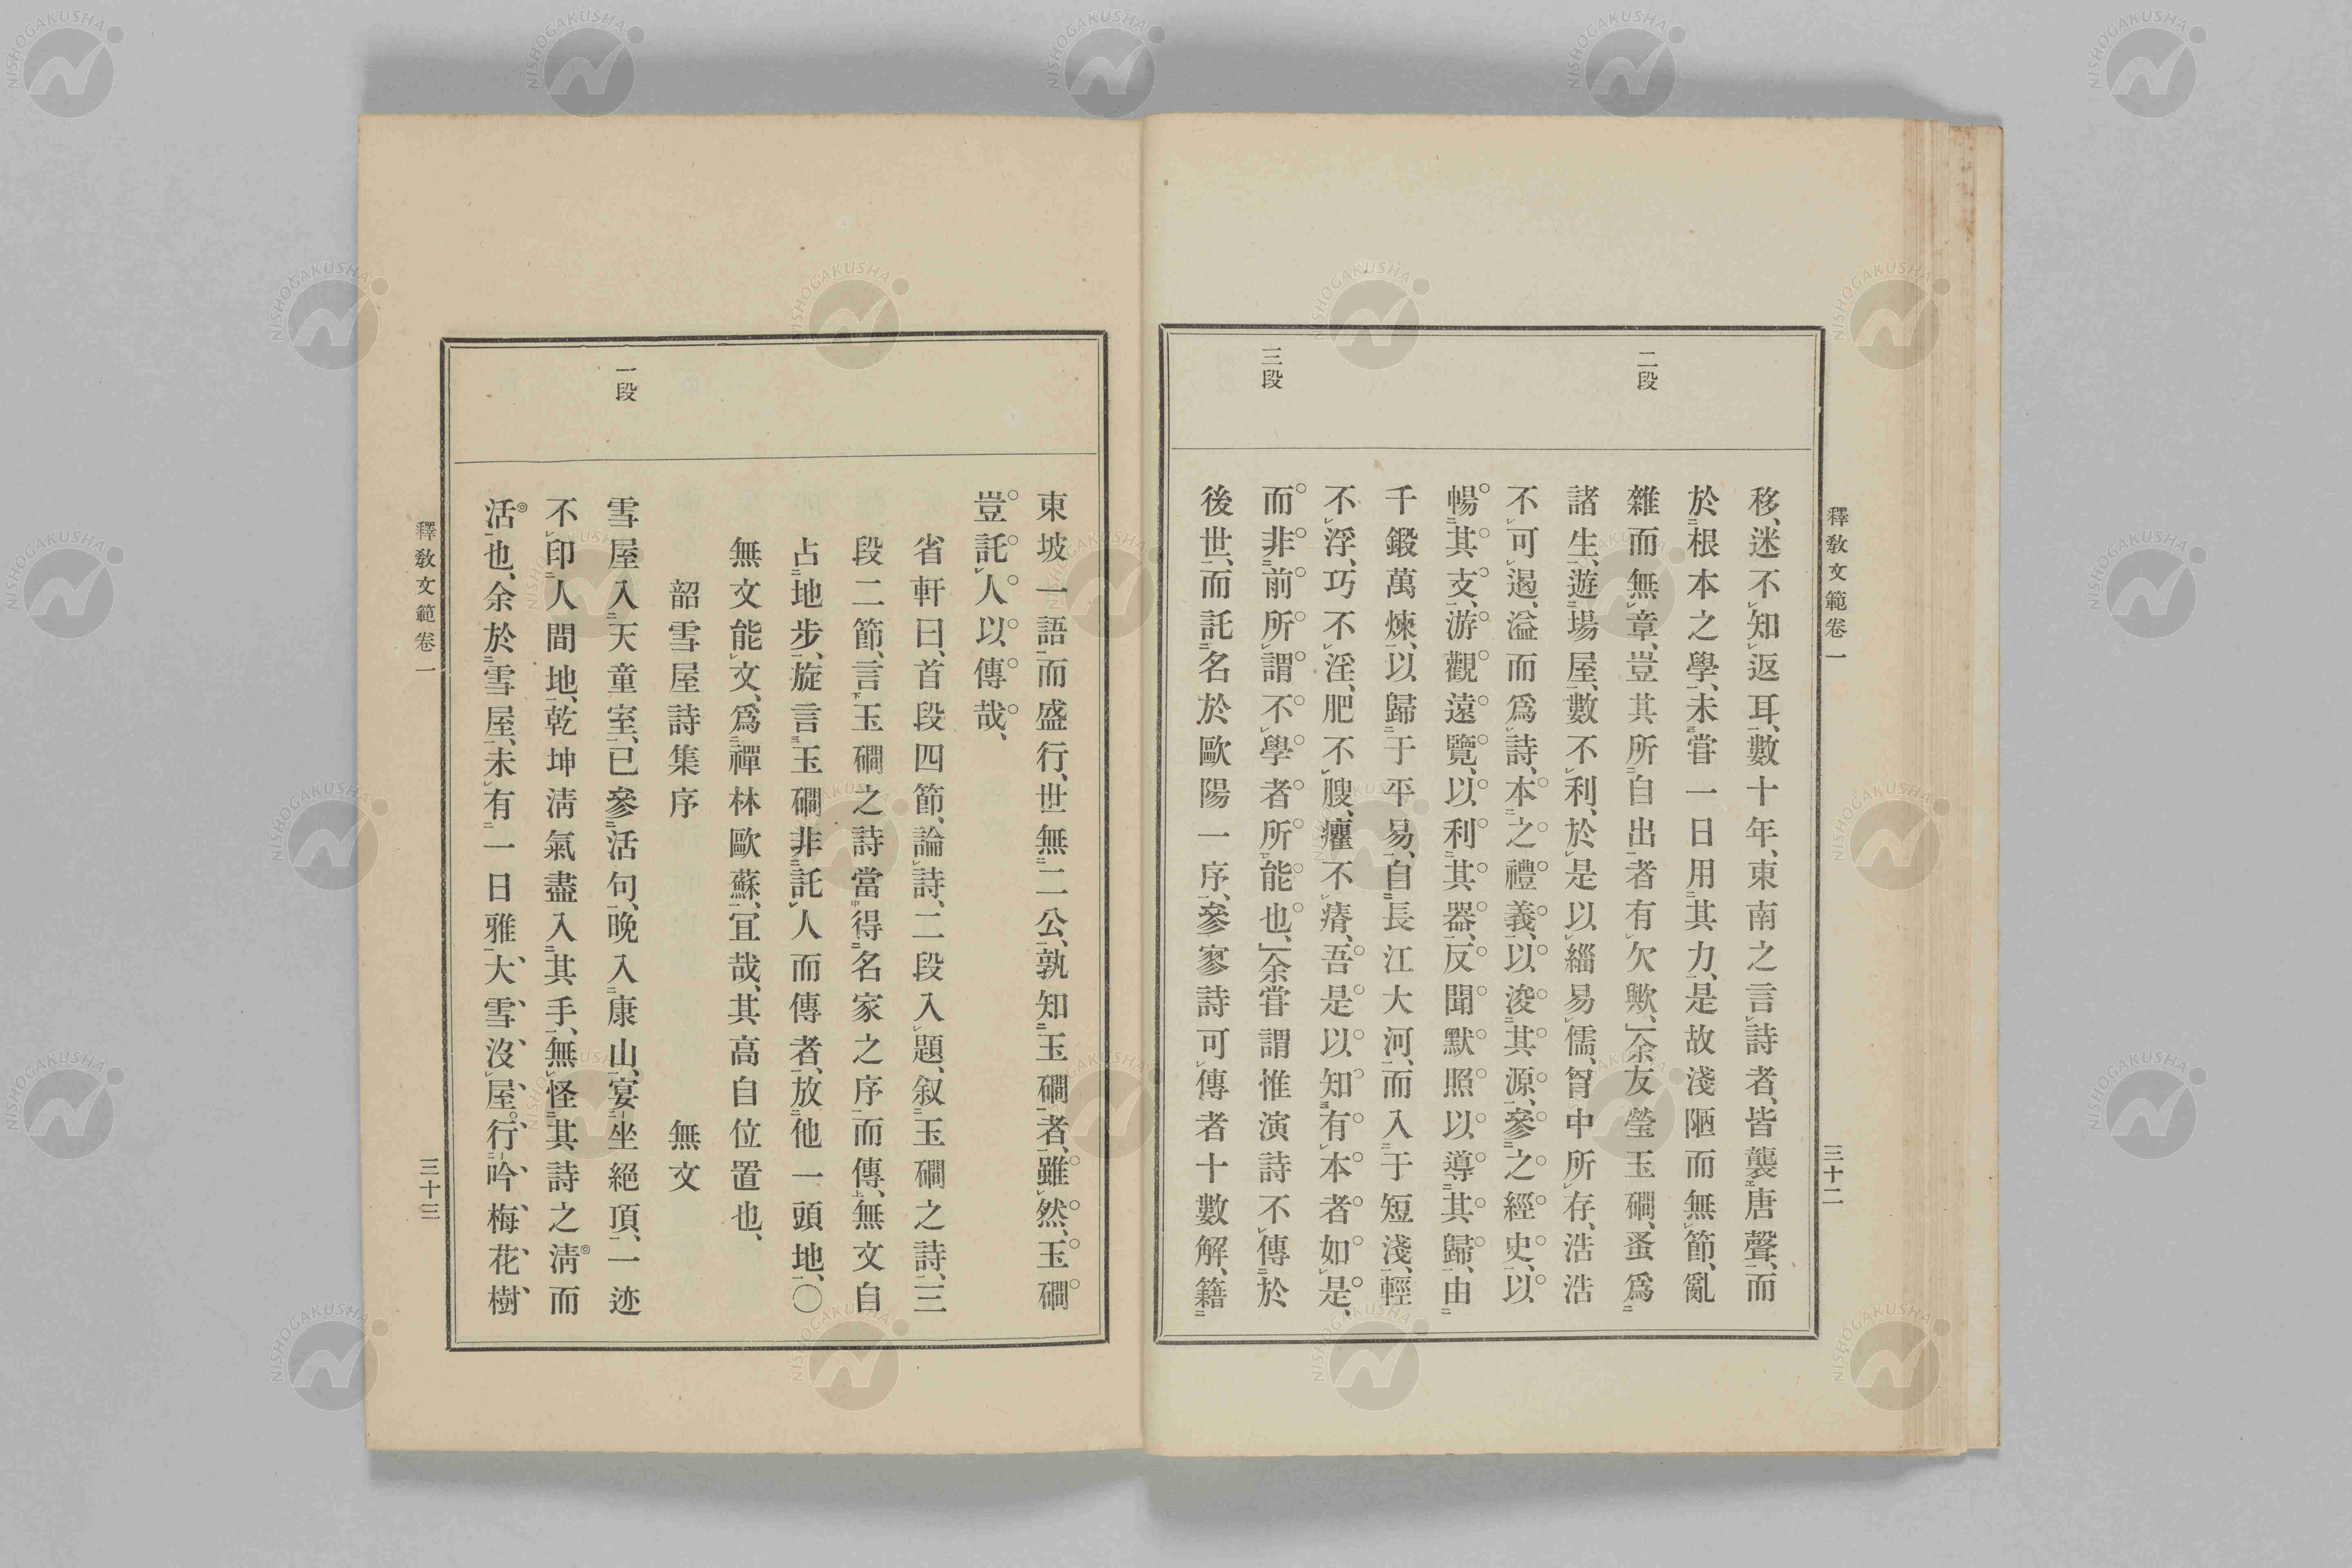 釋敎文範卷一
三十二
二段
三段
移、迷不知返耳、數十年、東南之言詩者、皆襲唐聲、而
於根本之學、未嘗一日用其力、是故淺陋而無節、亂
雜而無章、豈其所自出者有欠歟、余友瑩玉磵、蚤爲
諸生、遊場屋、數不利、於是以緇易儒、胷中所存、浩浩
不可遏、溢而爲詩、本之禮義、以浚其源、參之經史、以
暢其支、游觀遠覽、以利其器、反聞默照、以導其歸、由
千鍛萬煉、以歸于平易、自長江大河、而入于短淺、輕
不浮、巧不淫、肥不腴、癯不瘠、吾是以知有本者如是、
而非前所謂不學者所能也、余嘗謂惟演詩不傳於
後世、而託名於歐陽一序、參寥詩可傳者十數解、籍
東坡一語、而盛行、世無二公、孰知玉磵者、雖然、玉磵
豈託人以傳哉、
省軒曰、首段四節、論詩、二段入題、叙玉磵之詩、三
段二節、言玉磵之詩當得名家之序、而傳、無文自
占地步、旋言玉磵非託人而傳者、放他一頭地、〇
無文能文、爲禪林歐蘇、宜哉、其高自位置也、
韶雪屋詩集序 無文
一段
雪屋入天童室、已參活句、晚入康山、宴坐絕頂、一迹
不印人間地、乾坤淸氣盡入其手、無怪其詩之淸而
活也、余於雪屋、未有一日雅、大雪沒屋。行吟梅花樹
釋敎文範卷一
三十三
NISHOGAKUSHA